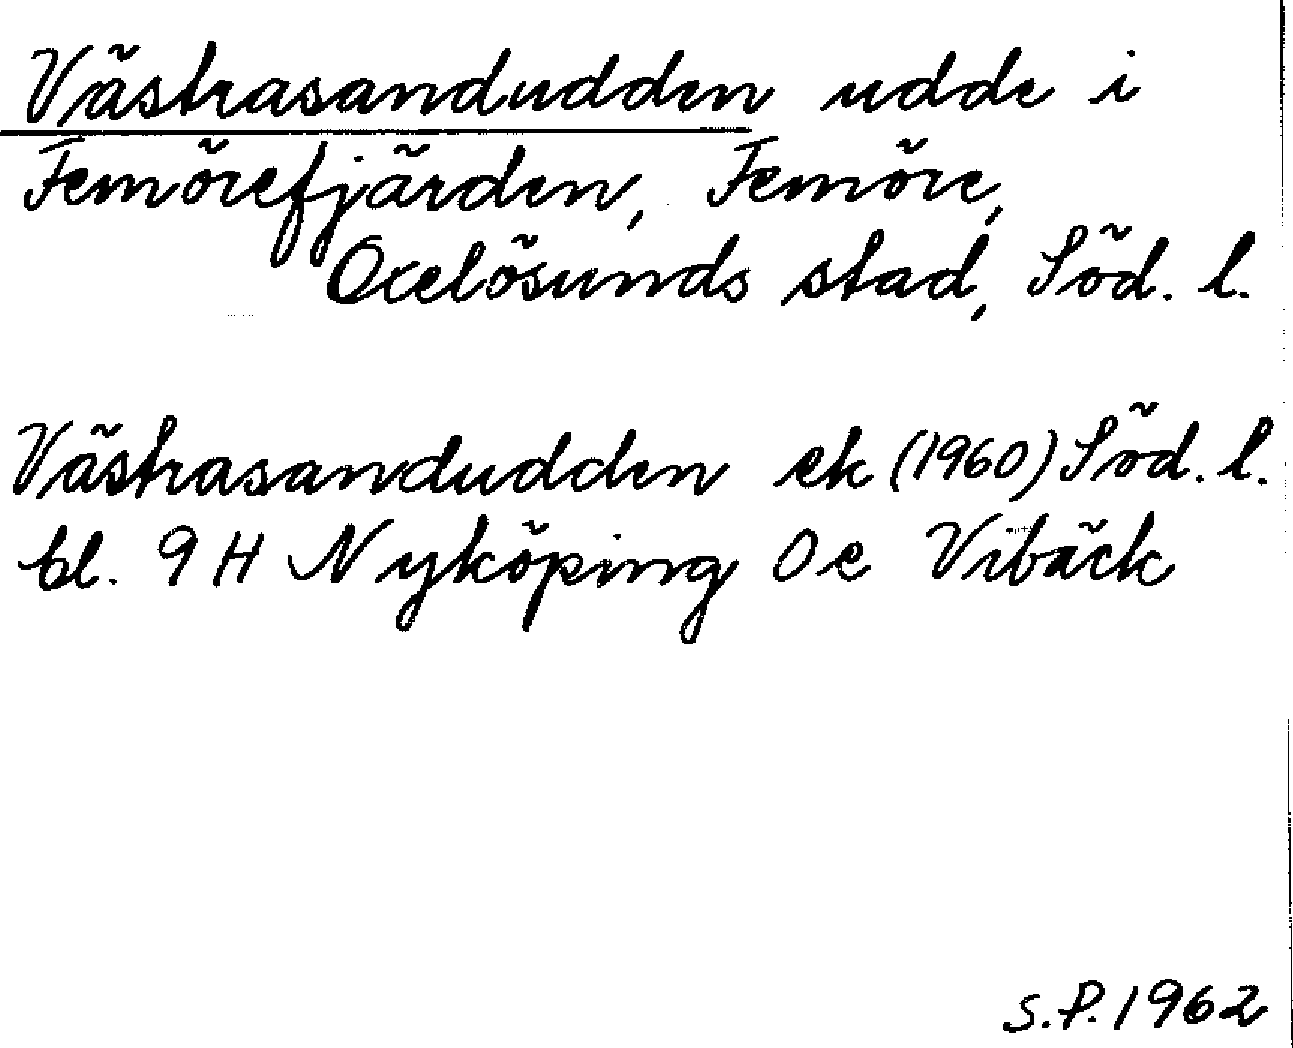 Västrasandudden udde i
Femörefjärden, Femöre,
Oxelösunds stad, Söd. l.
Västrasandudden ek (1960) Söd. l.
bl. 9 H Nyköping Oe Vibäck
S.P. 1962